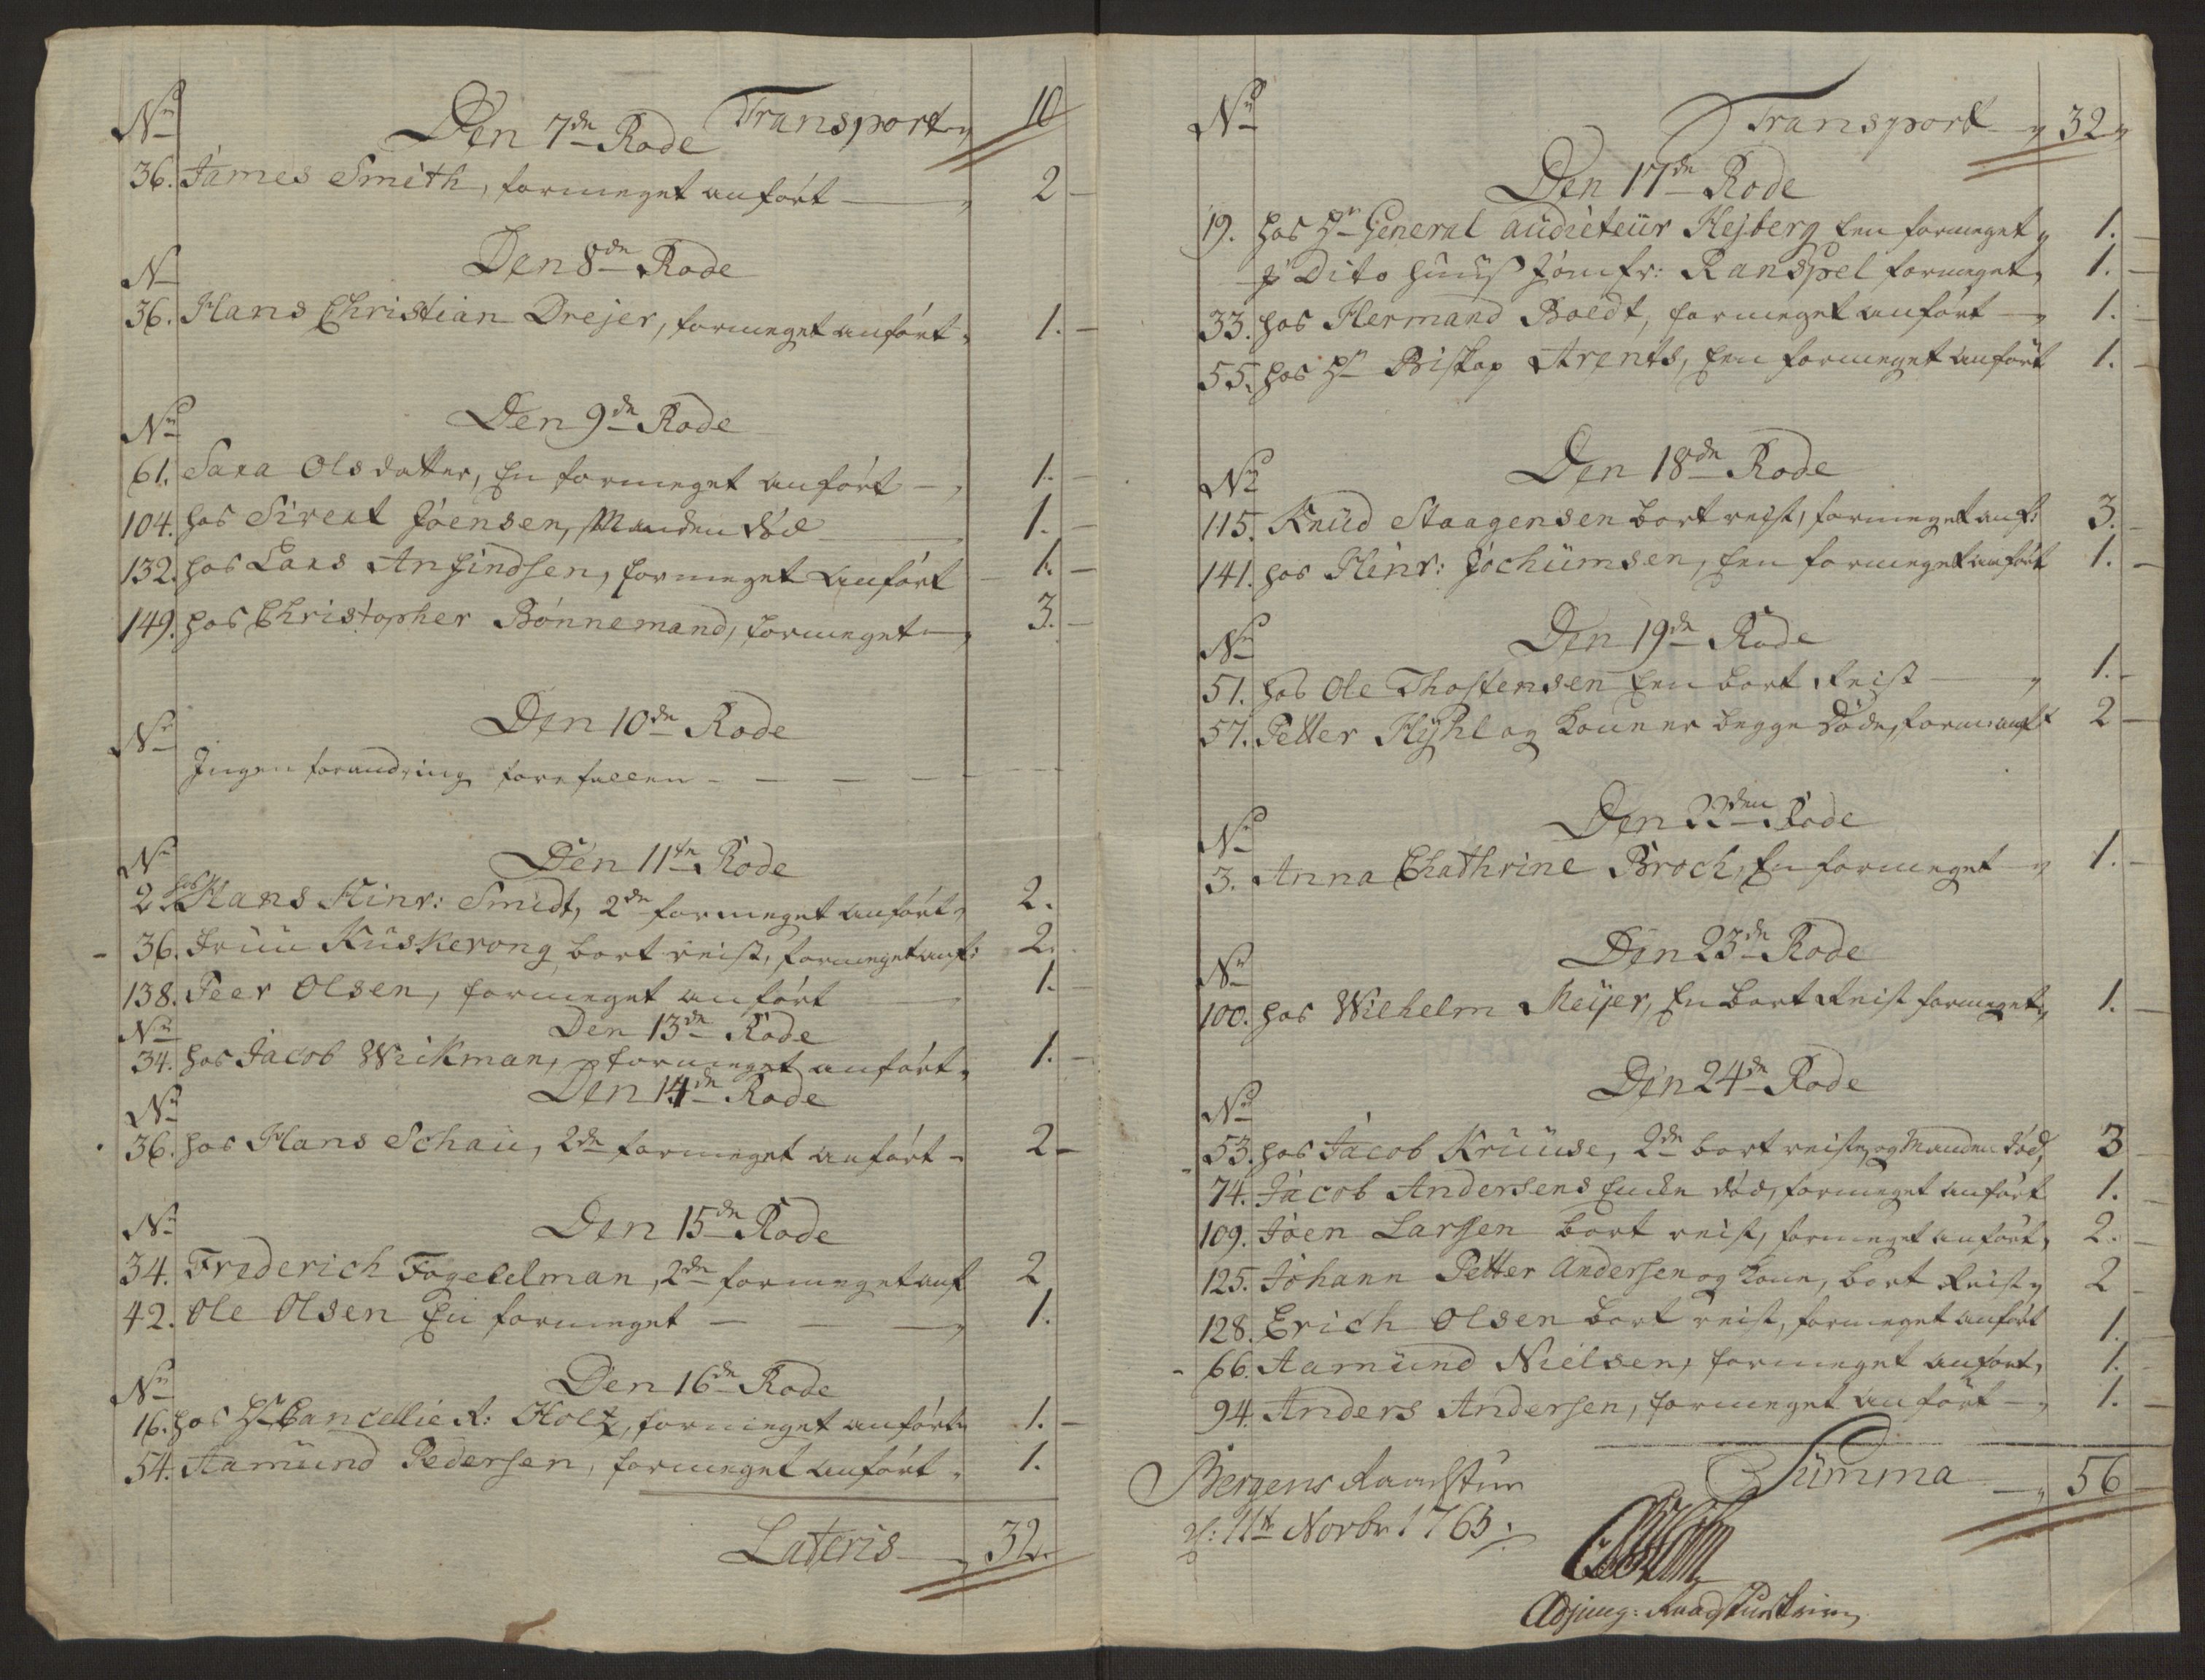 No Transport 10
Den 7de Rode
36. James Smith, formeget anført 2
No Den 8de Rode
36. Hans Christian Drejer, formeget anført 1.
No Den 9de Rode
61. Sara Olsdatter, En formeget anført 1.
104. hos Sivert Joensen, Manden død 1.
132. hos Lars Anfindsen, formeget anført 1.
149. hos Christopher Bønnemand, formeget 3.
No Den 10de Rode
Ingen forandring forefallen
No Den 11te Rode
2. hos Hans Hinr: Smidt, 2de formeget anført 2.
36. Kuskerong bort reist, formeget anf: 2.
138. Peer Olsen, formeget anført 1.
No Den 13de Rode
34. hos Jacob Wikman, formeget anført 1.
Den 14de Rode
No
36. hos Hans Schau, 2de formeget anført 2
No Den 15de Rode
34. Frederich Fogelelman, 2de formeget anf 2
42. Ole Olsen En formeget 1.
No Den 16de Rode
16. hos Hr Cancellie R: Holtz, formeget anført 1.
54. Aamund Pedersen, formeget anført 1.
Lateris 32.
No Transport 32
Den 17de Rode
19. hos Hr General auditeur Hejberg Een formeget 1.
i Dito Huus Jomfr: Ranspel formeget 1.
33. hos Hermand Boldt, formeget anført 1.
55. hos Hr Biskop Arents, Een formeget anført 1.
No Den 18de Rode
115. Knud Staagensen bort reist, formeget anf: 3.
141. hos Hinr: Jochumsen, Een formeget anført 1.
No Den 19de Rode
51. hos Ole Thostensen Een bort Reist 1.
57. Petter Hyhl og Konen begge døde, form: anf 2
Den 22den Rode
No
3. Anna Chathrine Broch, En formeget 1.
No Den 23de Rode
100. hos Wilhelm Meijer, En bort Reist formeget 1.
Den 24de Rode
No
53. hos Jacob Kruuse, 2de bort reiste, og Manden død, 3
74. Jacob Andersens Enke død, formeget anført 1.
109. Joen Larssen bort reist, formeget anført, 2.
125. Johann Petter Andersen og Kone, bort Reist 2
128. Erich Olsen bort reist, formeget anført 1.
66. Aamund Nielsen, formeget anført, 1.
94. Anders Andersen, formeget anført 1.
Summa 56
Bergens Raadstue
d: 11te Novbr 1763.
Adjung: Raadstueskriver